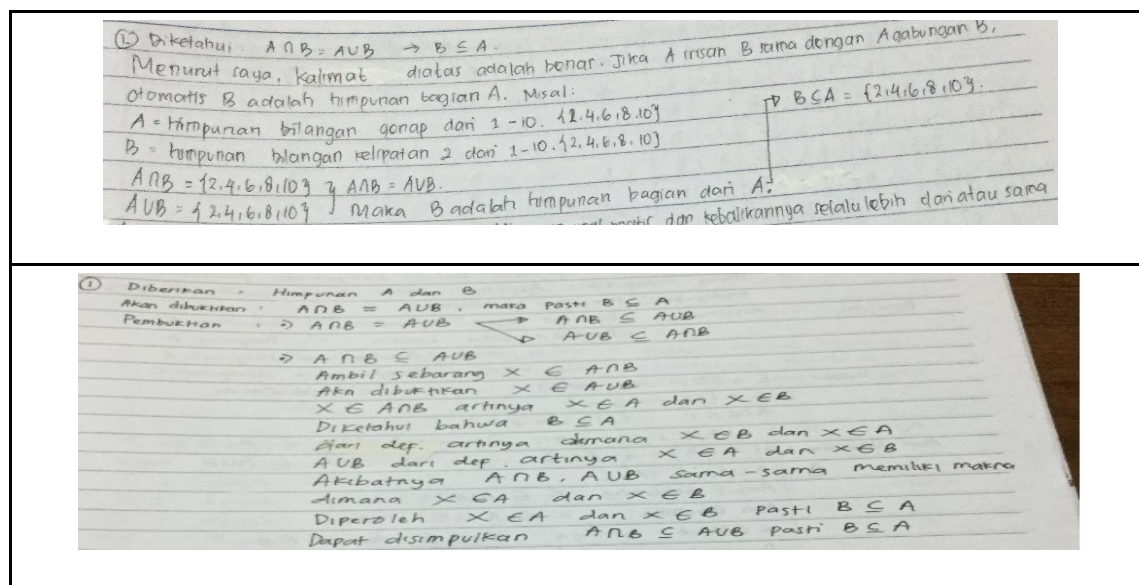 ① Diketahui : A ∩ B = A ∪ B → B ⊆ A.
Menurut saya, kalimat diatas adalah benar. Jika A irisan B sama dengan A gabungan B,
otomatis B adalah himpunan bagian A. Misal:
A = Himpunan bilangan genap dari 1 - 10. {2,4,6,8,10}
B = himpunan bilangan kelipatan 2 dari 1-10. {2,4,6,8,10}
B ⊆ A = {2,4,6,8,10}.
A∩B = {2,4,6,8,10} } A∩B = A∪B.
A∪B = {2,4,6,8,10} } Maka B adalah himpunan bagian dari A.
dan kebalikannya selalu lebih dari atau sama
① Diberikan : Himpunan A dan B
Akan dibuktikan : A∩B = A∪B . maka pasti B ⊆ A
Pembuktian : => A∩B = A∪B → A∩B ⊆ A∪B
→ A∪B ⊆ A∩B
=> A∩B ⊆ A∪B
Ambil sebarang x ∈ A∩B
Akn dibuktikan x ∈ A∪B
x ∈ A∩B artinya x ∈ A dan x ∈ B
Diketahui bahwa B ⊆ A
dari def. artinya dimana x ∈ B dan x ∈ A
A∪B dari def. artinya x ∈ A dan x ∈ B
Akibatnya A∩B, A∪B sama-sama memiliki makna
dimana x ∈ A dan x ∈ B
Diperoleh x ∈ A dan x ∈ B pasti B ⊆ A
Dapat disimpulkan A∩B ⊆ A∪B pasti B ⊆ A